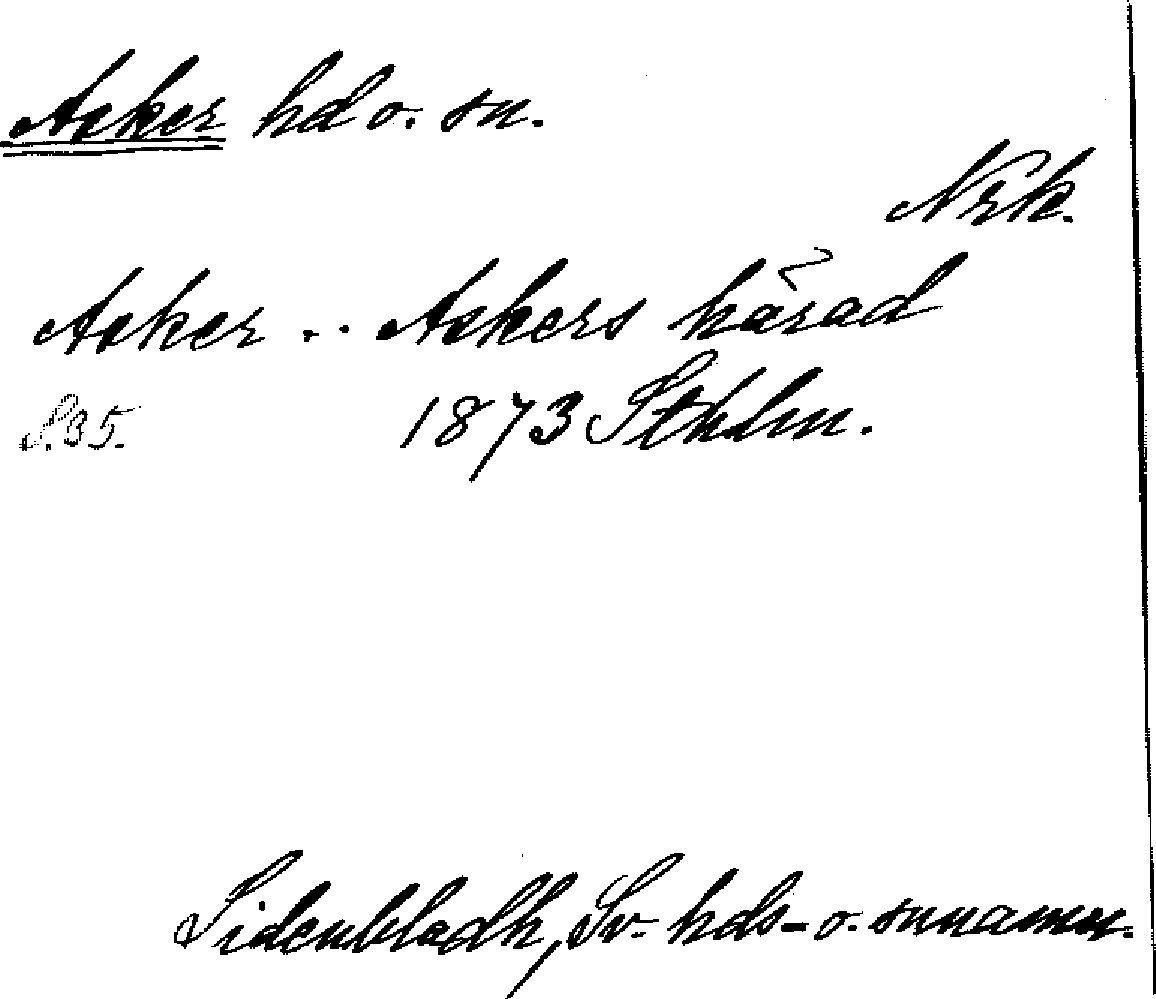 Asker hd o. sn.
Nrk.
Asker .. Askers härad
S. 35. 1873 Sthlm.
Sidenbladh, Sv. hds- o. snnamn.